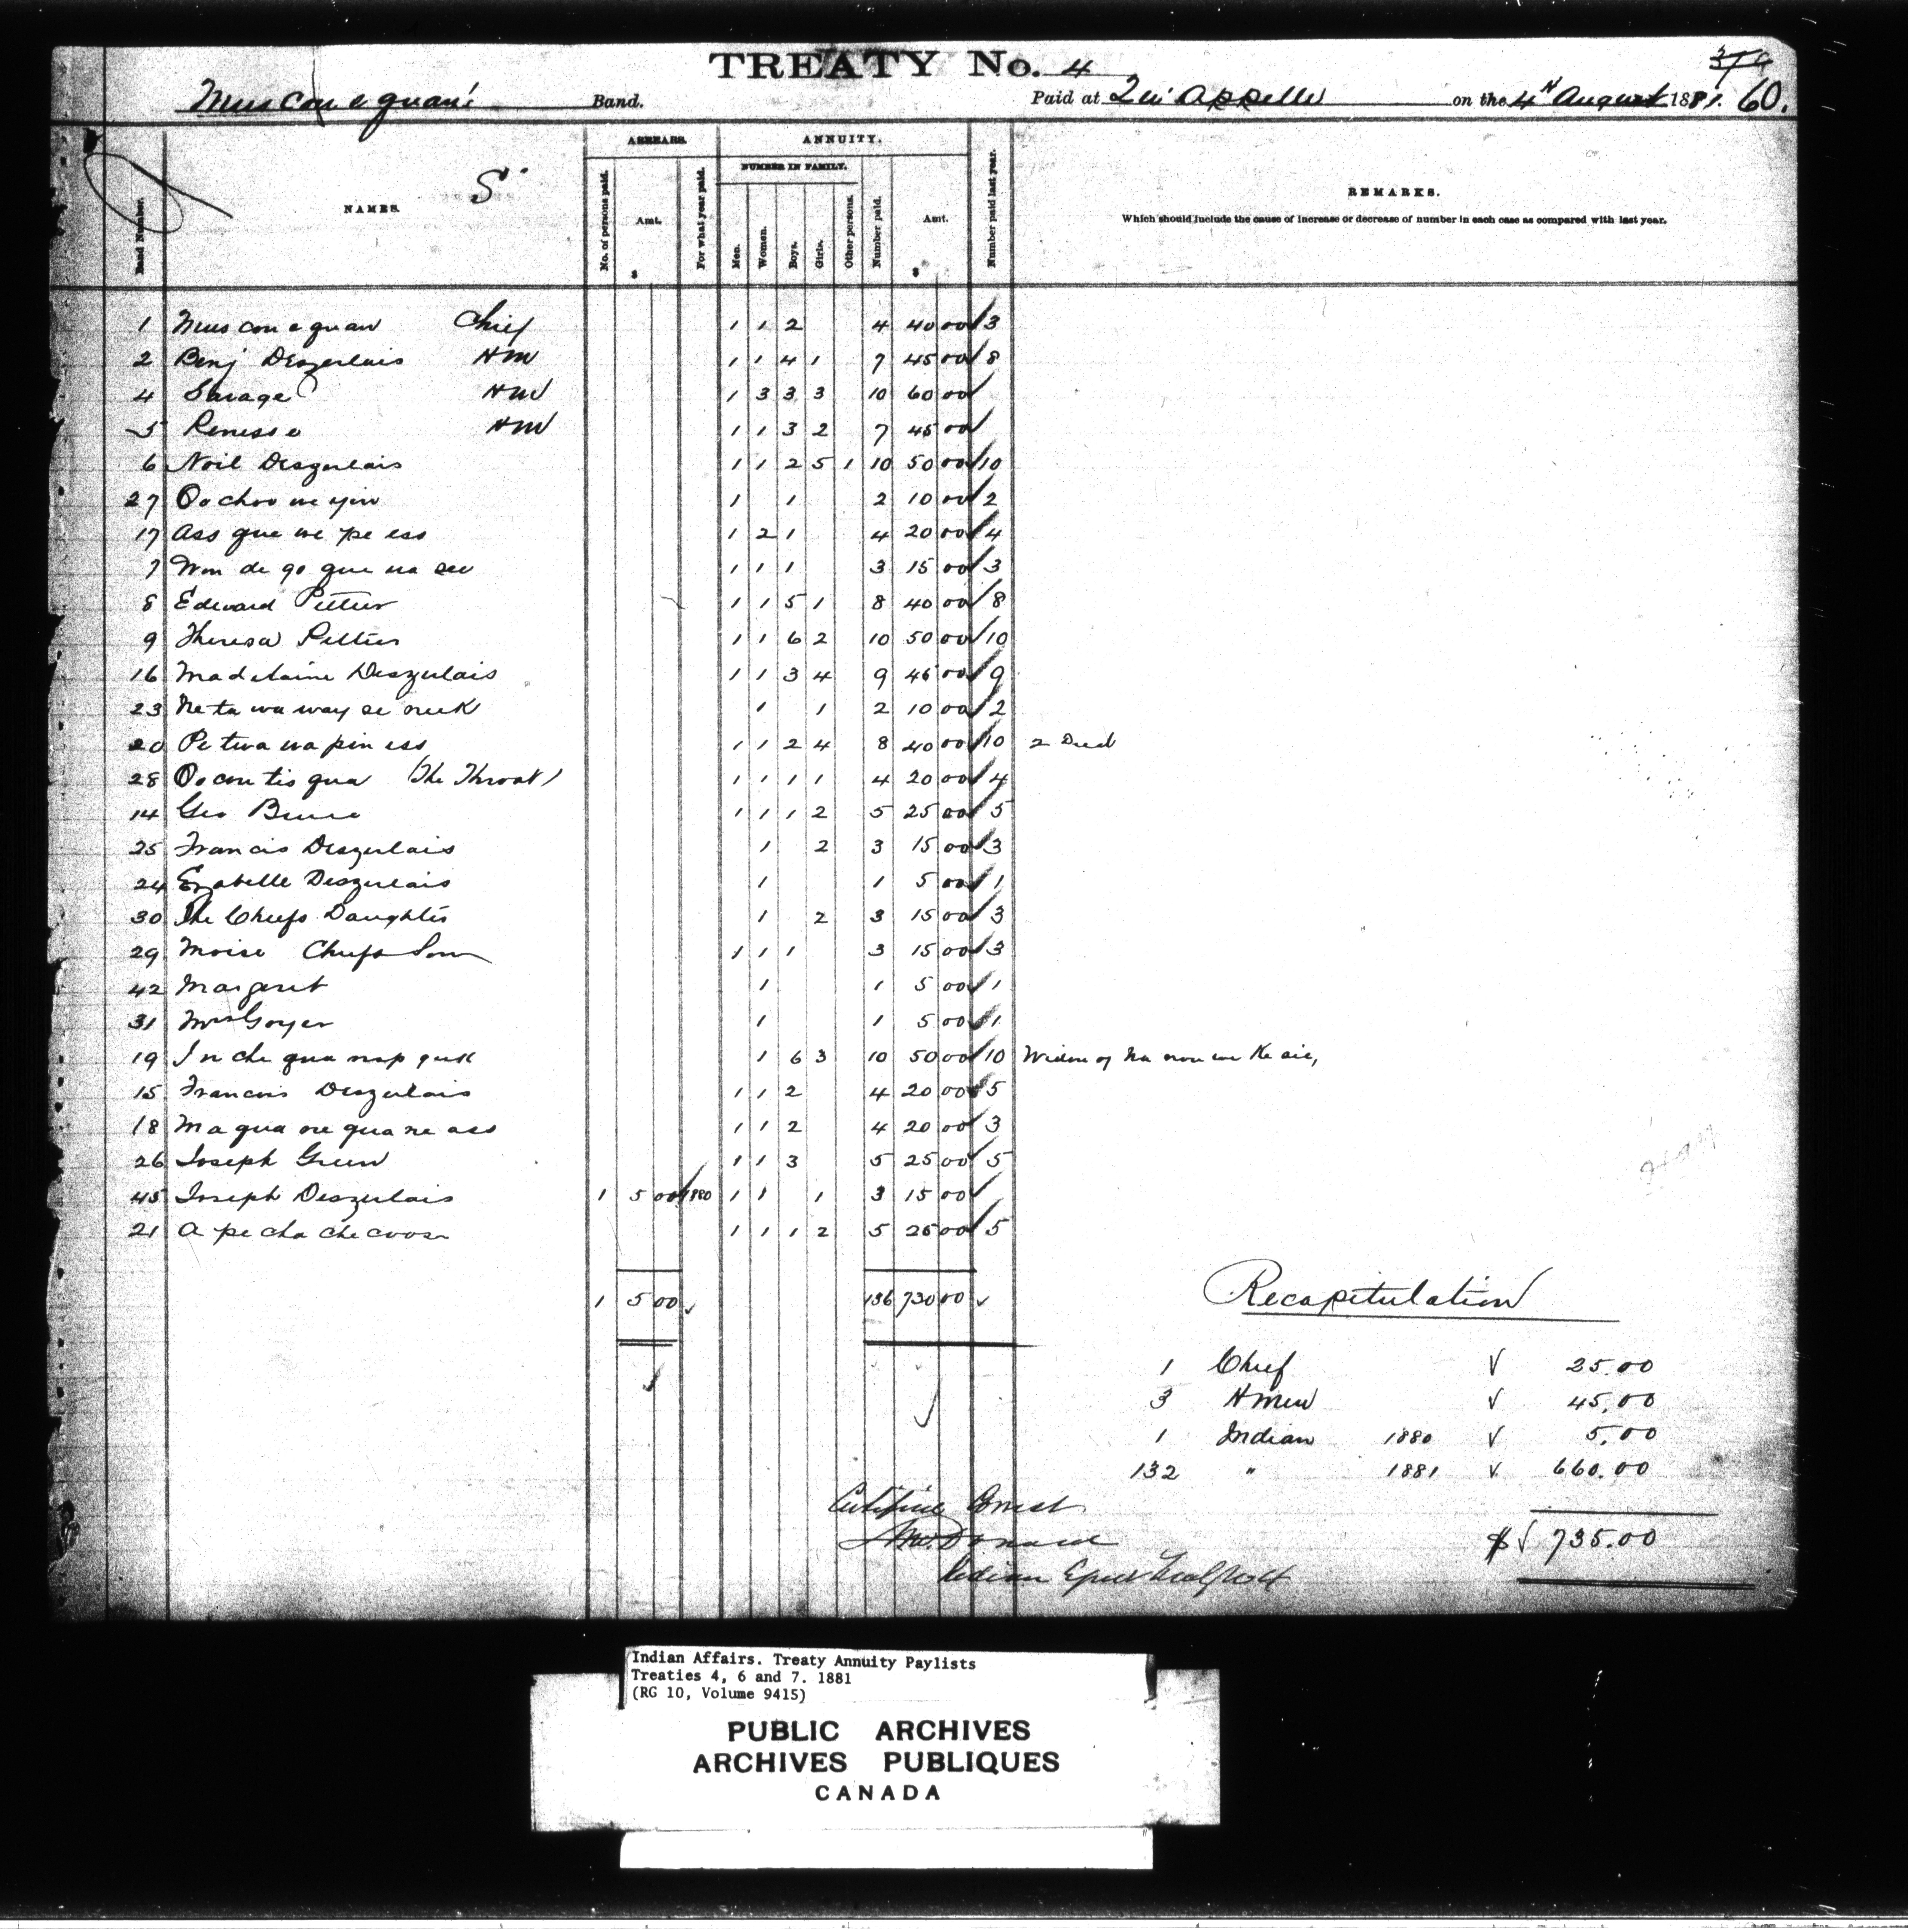 TREATY No. 4
374
Muscowequan's Band. Paid at Qu'Appelle on the 4th August 1881. 60.
Band Number. NAMES. S. ARREARS. No. of persons paid. Amt. $ For what year paid. ANNUITY. NUMBER IN FAMILY. Men. Women. Boys. Girls. Other persons. Number paid. Amt. $ Number paid last year. REMARKS.
Which should include the cause of increase or decrease of number in each case as compared with last year.
1 Mus cow e quan Chief 1 1 2 4 40 00 3
2 Benj Desjerlais HM 1 1 4 1 7 45 00 8
4 Savage HM 1 3 3 3 10 60 00
5 Penesse HM 1 1 3 2 7 45 00
6 Noil Desjerlais 1 1 2 5 1 10 50 00 10
27 Oo choo we yin 1 1 2 10 00 2
17 Ass que we pe ess 1 2 1 4 20 00 4
7 Won de go que na 1 1 1 3 15 00 3
8 Edward Peltier 1 1 5 1 8 40 00 8
9 Theresa Peltier 1 1 6 2 10 50 00 10
16 Madelaine Desjerlais 1 1 3 4 9 45 00 9
23 Ne ta wa way se neek 1 1 2 10 00 2
20 Pe twa wa pin ess 1 1 2 4 8 40 00 10 2 Died
28 Oo con tis qua (The Throat) 1 1 1 1 4 20 00 4
14 Geo Bruce 1 1 1 2 5 25 00 5
25 Francis Desjerlais 1 2 3 15 00 3
24 Ezabelle Desjerlais 1 1 5 00 1
30 The Chiefs Daughter 1 2 3 15 00 3
29 Moise Chiefs Son 1 1 1 3 15 00 3
42 Margaret 1 1 5 00 1
31 Mrs Goyer 1 1 5 00 1
19 In che qua nap 1 6 3 10 50 00 10 Widow of Na
15 Francois Desjerlais 1 1 2 4 20 00 5
18 Ma qua ne qua ne ass 1 1 2 4 20 00 3
26 Joseph Green 1 1 3 5 25 00 5
45 Joseph Desjerlais 1 5 00 1880 1 1 1 3 15 00
21 A pe cha che coose 1 1 1 2 5 25 00 5
1 5 00 136 730 00
Recapitulation
1 Chief 25.00
3 H Men 45.00
1 Indian 1880 5.00
132 " 1881 660.00
Certified Correct
$ 735.00
A McDonald
Indian Agent Treaty No 4
Indian Affairs. Treaty Annuity Paylists
Treaties 4, 6 and 7. 1881
(RG 10, Volume 9415)
PUBLIC ARCHIVES
ARCHIVES PUBLIQUES
CANADA